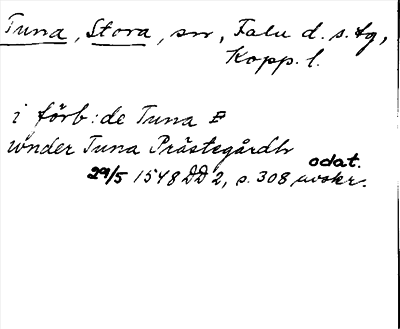 Tuna, Stora, sn, Falu d. s. tg,
Kopp. l.
i förb: de Tuna
wnder Tuna Prästegårdh
odat.
29/5 1548 DD 2, s. 308 avskr.